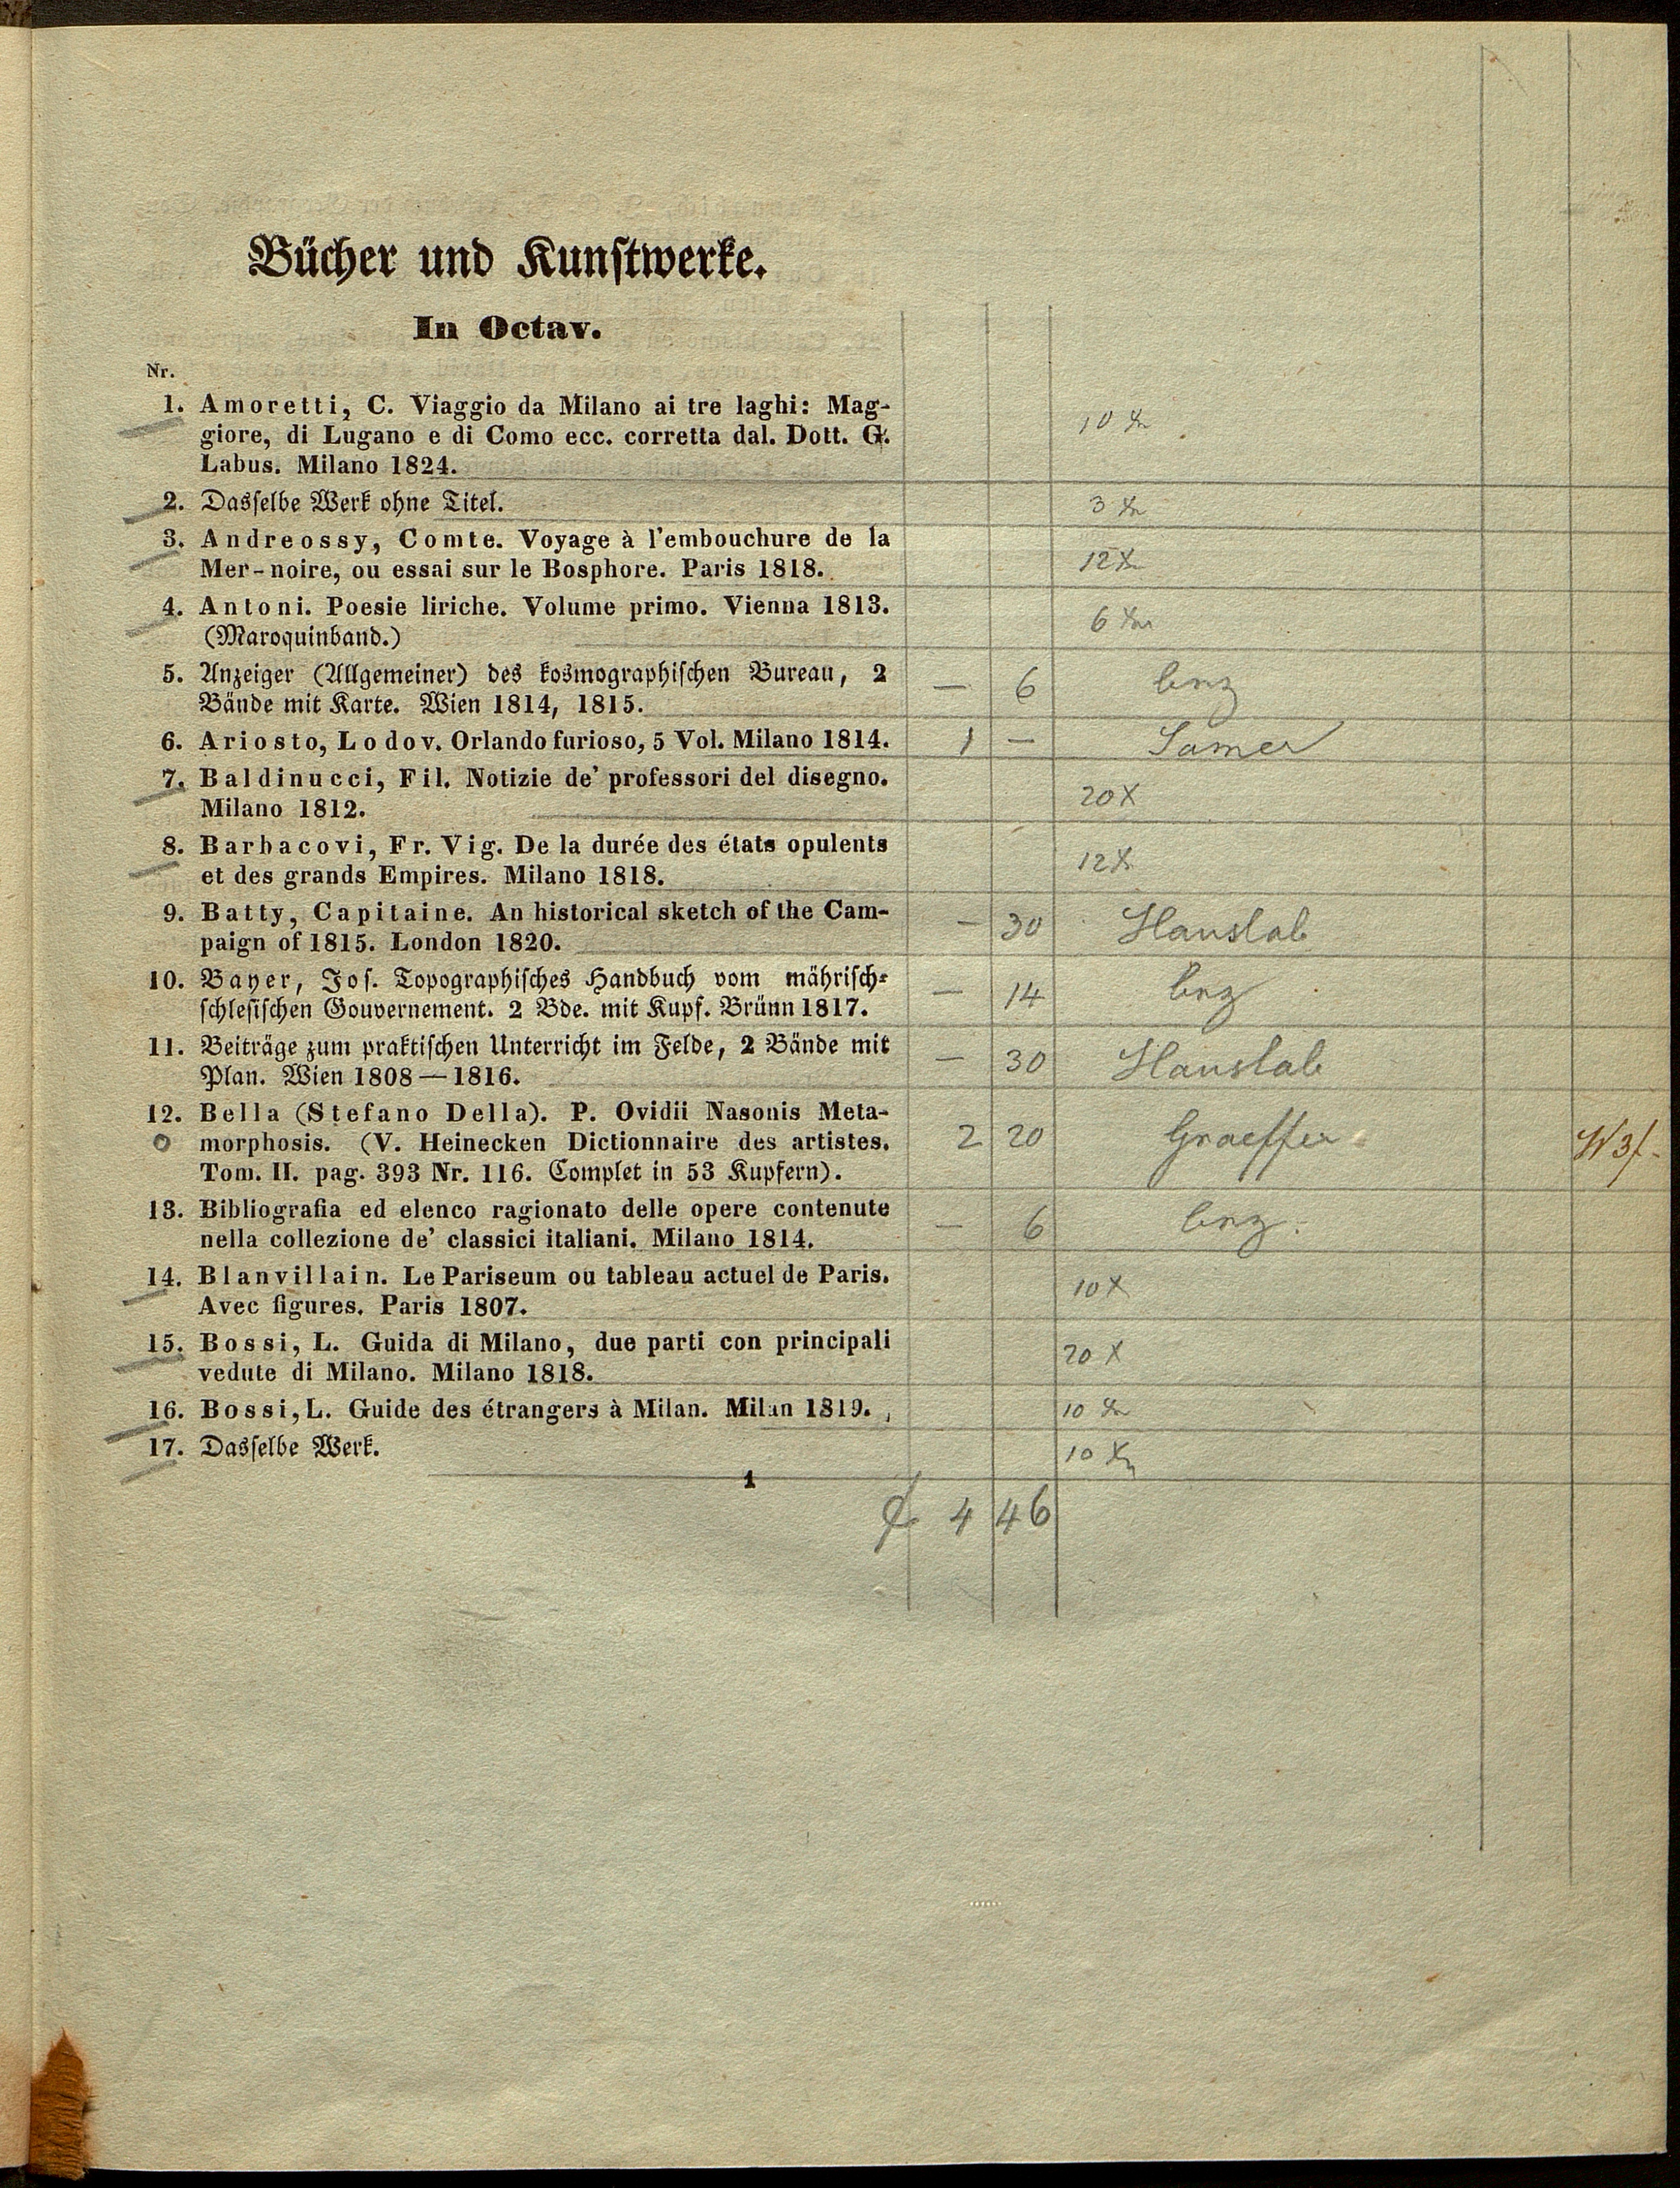 Bücher und Kunstwerke.
In Octav.
Nr.
1. Amoretti, C. Viaggio da Milano ai tre laghi: Mag-
giore, di Lugano e di Como ecc. corretta dal. Dott. G.
Labus. Milano 1824.
10 x
2. Dasselbe Werk ohne Titel.
3 x
3. Andreossy, Comte. Voyage à l'embouchure de la
Mer-noire, ou essai sur le Bosphore. Paris 1818.
12 x
4. Antoni. Poesie liriche. Volume primo. Vienna 1813.
(Maroquinband.)
6 x
5. Anzeiger (Allgemeiner) des kosmographischen Bureau, 2
Bände mit Karte. Wien 1814, 1815.
— 6
6. Ariosto, Lodov. Orlando furioso, 5 Vol. Milano 1814.
1 —
7. Baldinucci, Fil. Notizie de' professori del disegno.
Milano 1812.
20 x
8. Barbacovi, Fr. Vig. De la durée des états opulents
et des grands Empires. Milano 1818.
12 x
9. Batty, Capitaine. An historical sketch of the Cam-
paign of 1815. London 1820.
— 30 Hauslab
10. Bayer, Jos. Topographisches Handbuch vom mährisch-
schlesischen Gouvernement. 2 Bde. mit Kupf. Brünn 1817.
— 14
11. Beiträge zum praktischen Unterricht im Felde, 2 Bände mit
Plan. Wien 1808—1816.
— 30 Hauslab
12. Bella (Stefano Della). P. Ovidii Nasonis Meta-
morphosis. (V. Heinecken Dictionnaire des artistes.
Tom. II. pag. 393 Nr. 116. Complet in 53 Kupfern).
2 20 Graeffer W 3f-
13. Bibliografia ed elenco ragionato delle opere contenute
nella collezione de' classici italiani. Milano 1814.
— 6
14. Blanvillain. Le Pariseum ou tableau actuel de Paris.
Avec figures. Paris 1807.
10 x
15. Bossi, L. Guida di Milano, due parti con principali
vedute di Milano. Milano 1818.
20 x
16. Bossi, L. Guide des étrangers à Milan. Milan 1819.
10 x
17. Dasselbe Werk.
10 x
1
4 46